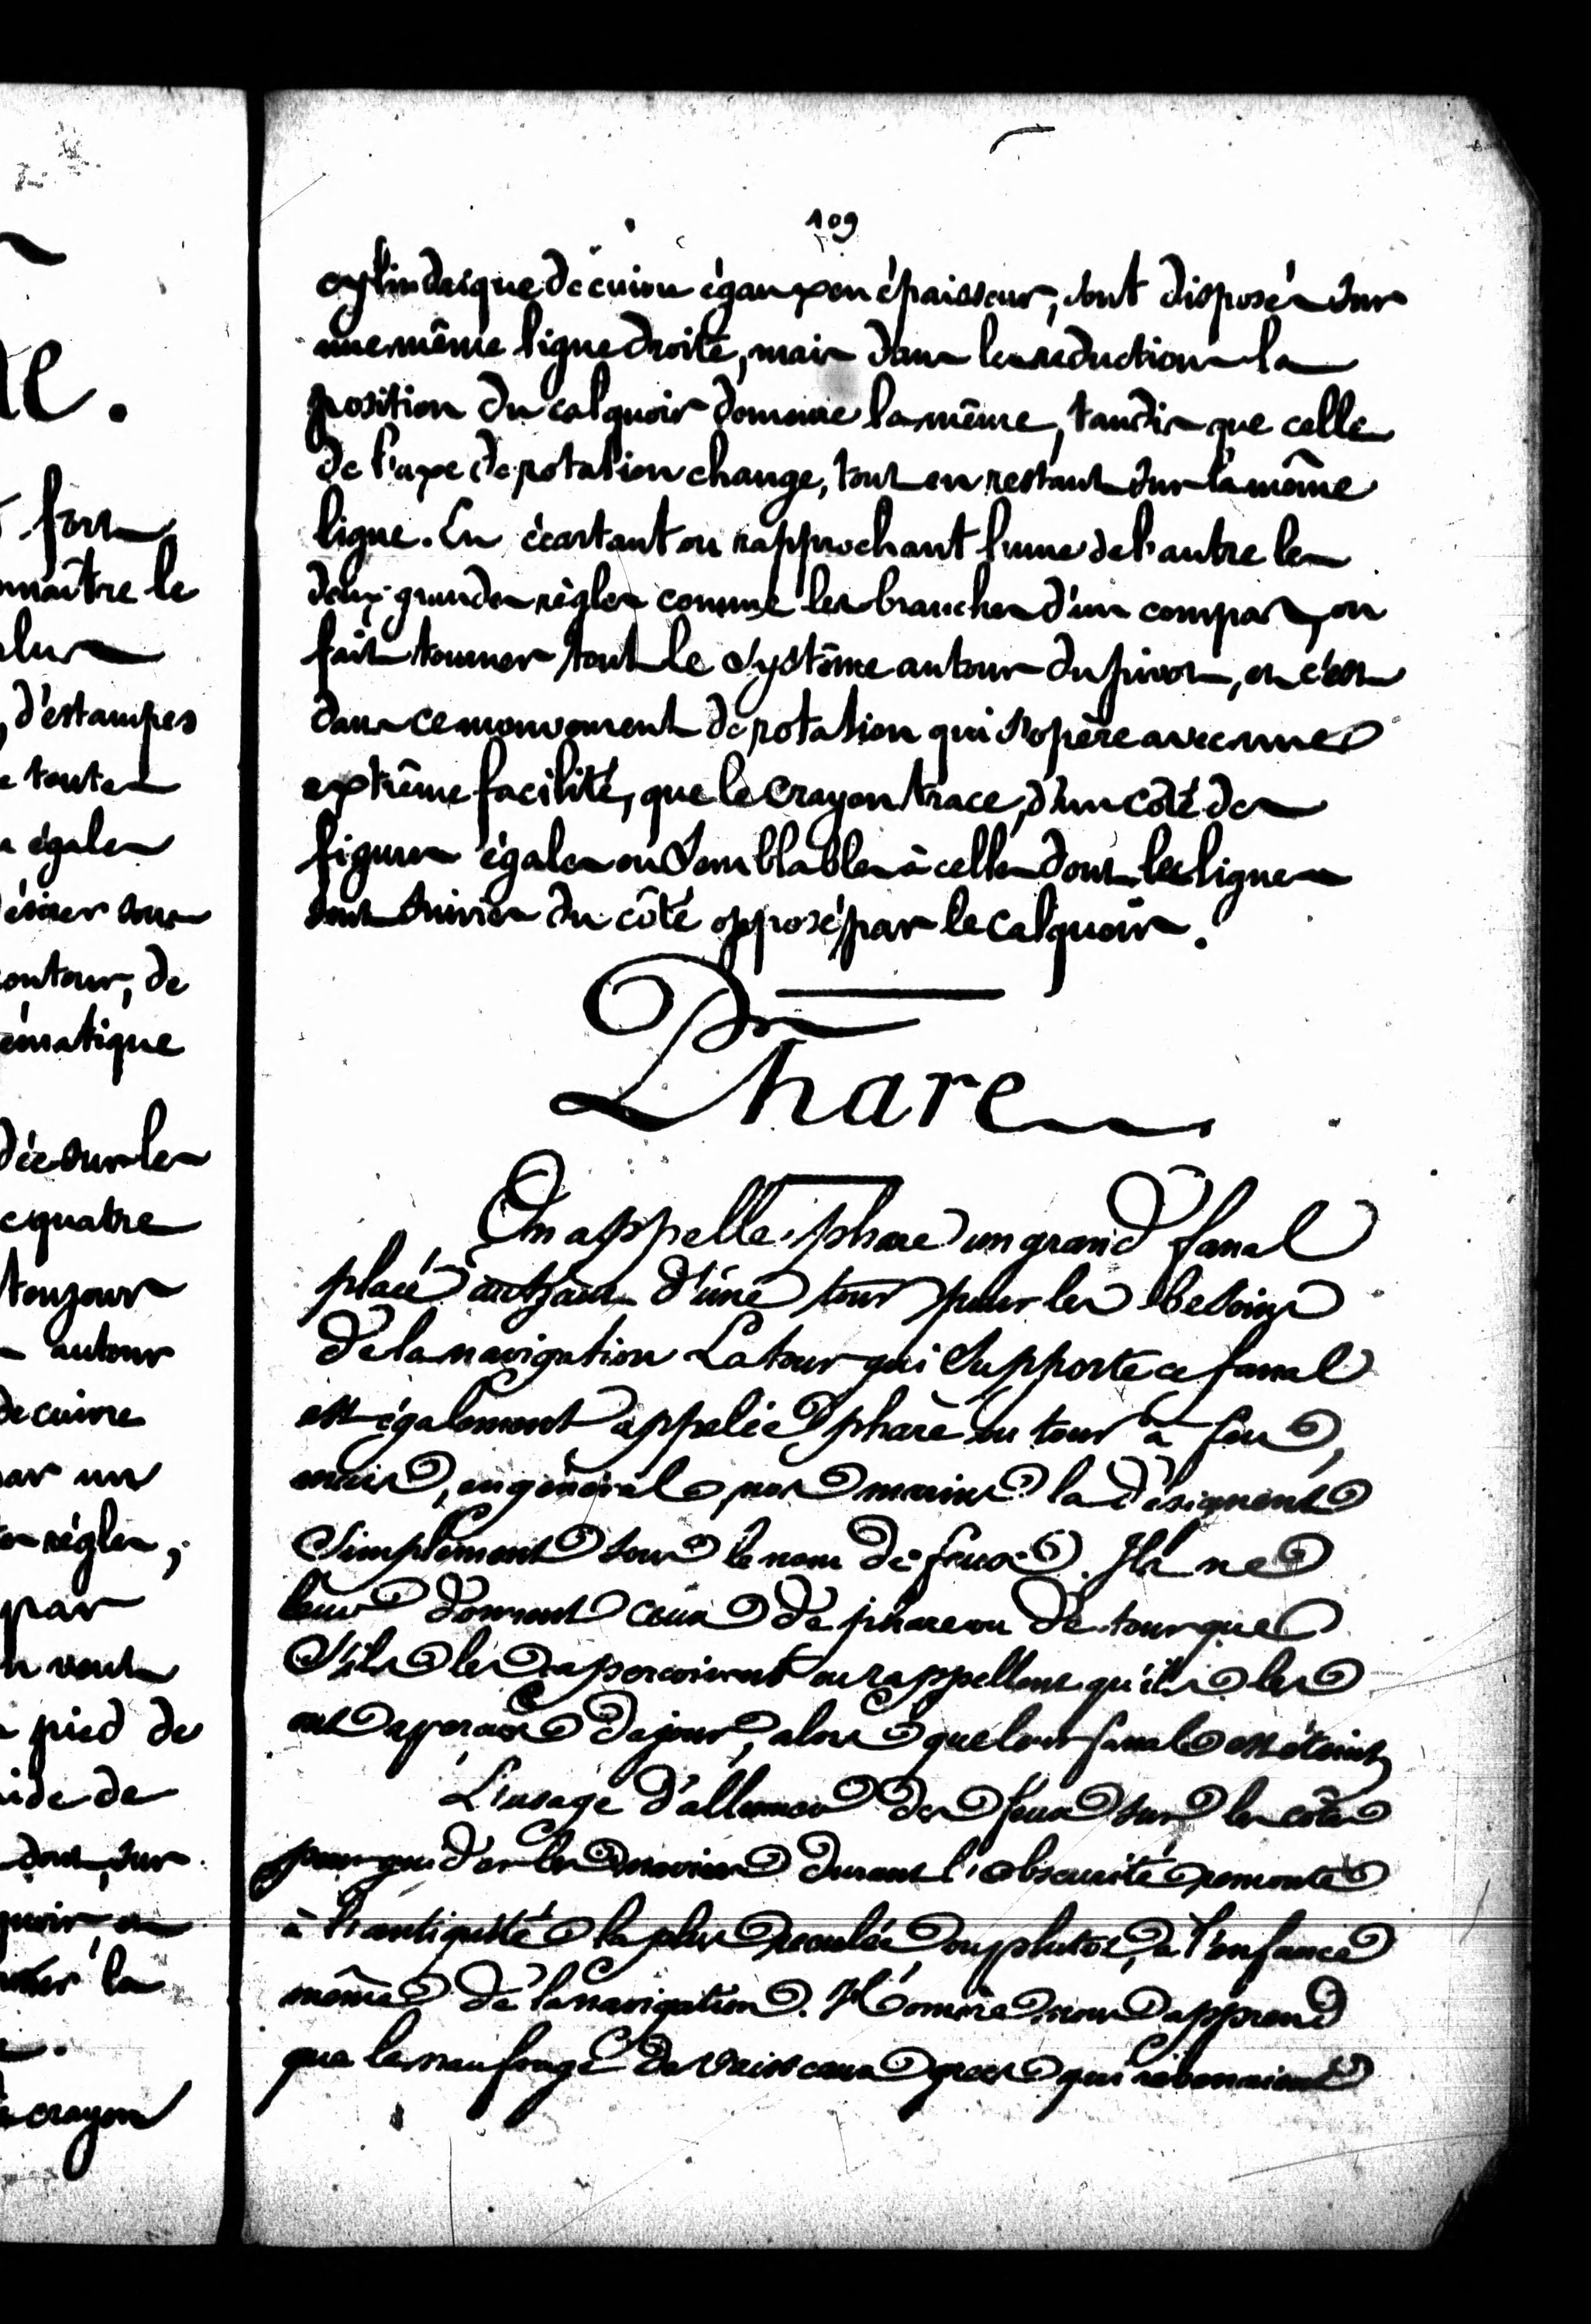 109
cylindrique de cuivre égaux en épaisseur, sont disposés sur
une même ligne droite, mais dans les réductions la
position du calquoir demeure la même, tandis que celle
de l'axe de rotation change, tout en restant sur la même
ligne. En écartant ou rapprochant l'une de l'autre les
deux grandes règles comme les branches d'un compas, on
fait tourner tout le système autour du pivot, et c'est
dans ce mouvement de rotation qui s'opère avec une
extrême facilité, que le crayon trace, d'un côté des
figures égales ou semblables à celles dont les lignes
sont suivies du côté opposé par le calquoir.
Phare
On appelle phare un grand fanal
placé au haut d'une tour pour les besoins
de la navigation La tour qui supporte ce fanal
est également appelée phare ou tour à feu,
mais, en général, nos marins la désignent
simplement sous le nom de feux. Ils ne
leur donnent ceux de phare ou de tour que
s'ils les aperçoivent ou rappellent qu'ils les
ont aperçus de jour, alors que leur fanal est éteint
L'usage d'allumer des feux sur les côtes
pour guider les marins durant l'obscurité remonte
à l'antiquité la plus reculée, ou plutôt, à l'enfance
même de la navigation. Homère nous apprend
que le naufrage des vaisseaux grecs qui revenaient
fort
connaître le
plus
, d'estampes
e toutes
égales
désirer sous
contour, de
ématique
dée sur les
quatre
toujours
autour
de cuivre
par un
règles,
par
veut
pied de
aide de
dont, sur
la
crayon